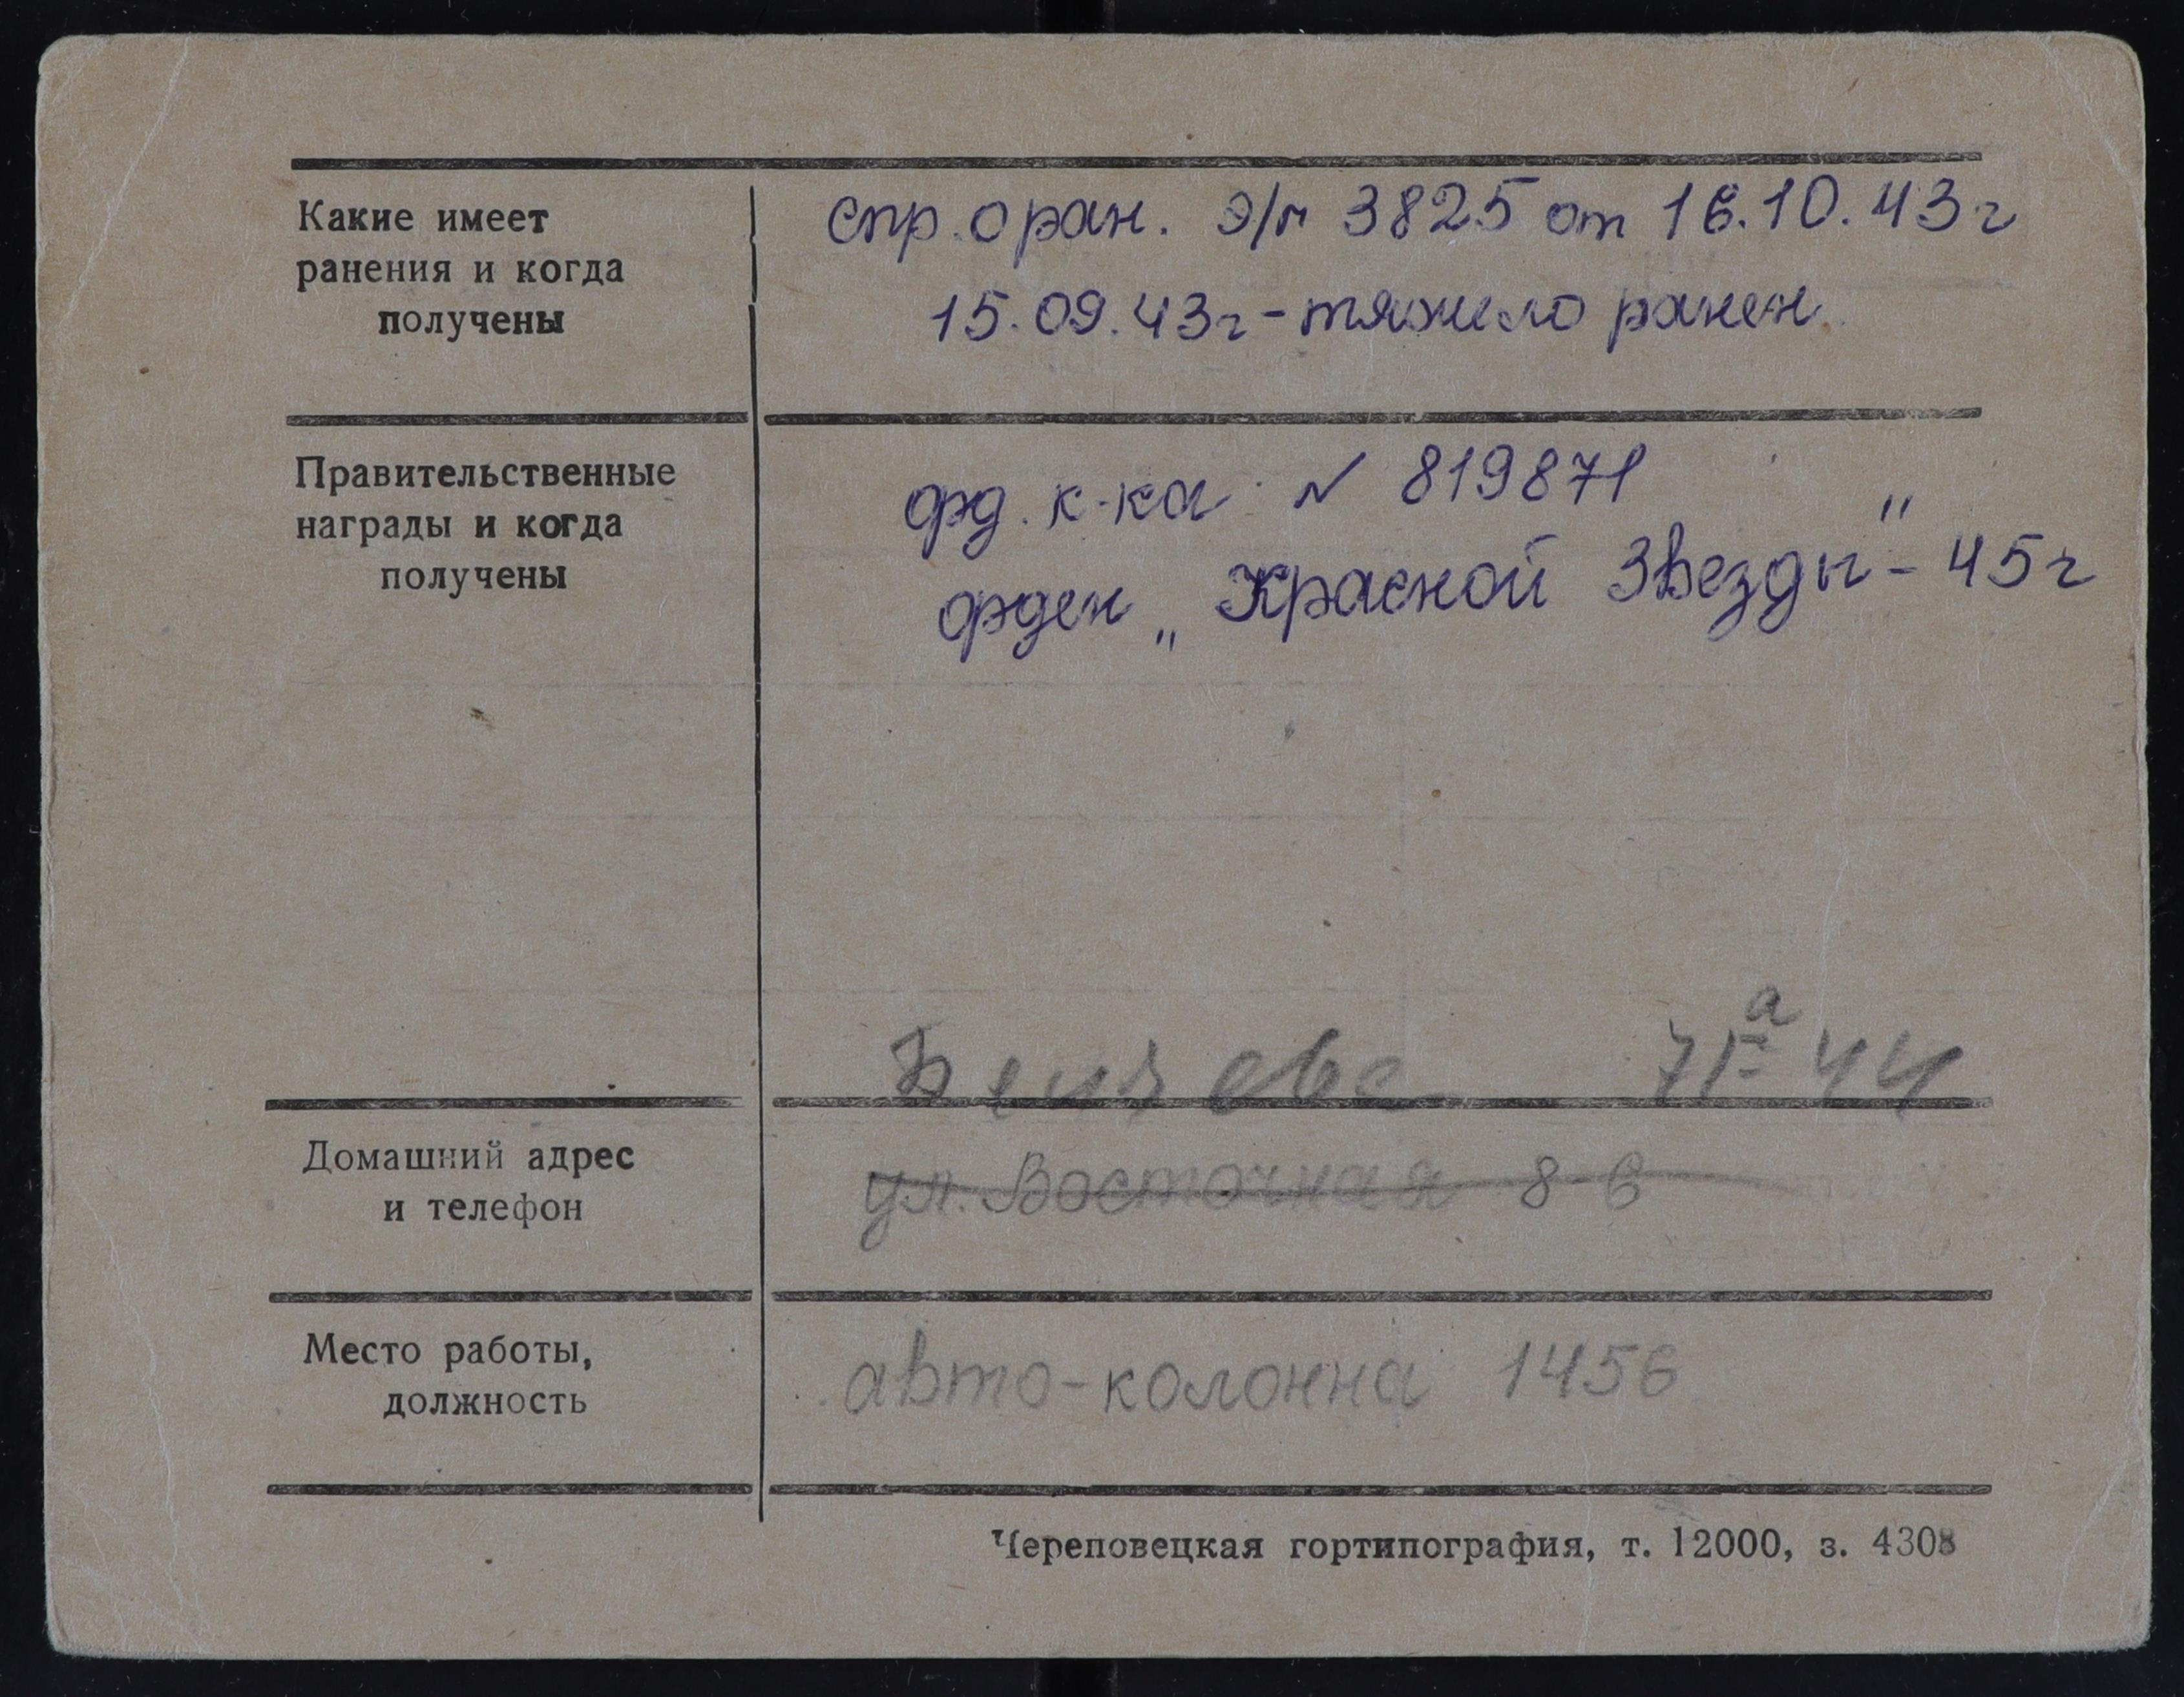 Какие имеет
ранения и когда
получены
спр. о ран. э/г 3825 от 16.10.43г
15.09.43г - тяжело ранен.
Правительственные
награды и когда
получены
орд. к-ка № 819871
орден „Красной Звезды" - 45г
71а 44
Домашний адрес
и телефон
ул. Восточная 8-6
Место работы,
должность
авто-колонна 1456
Череповецкая гортипография, т. 12000, з. 4308